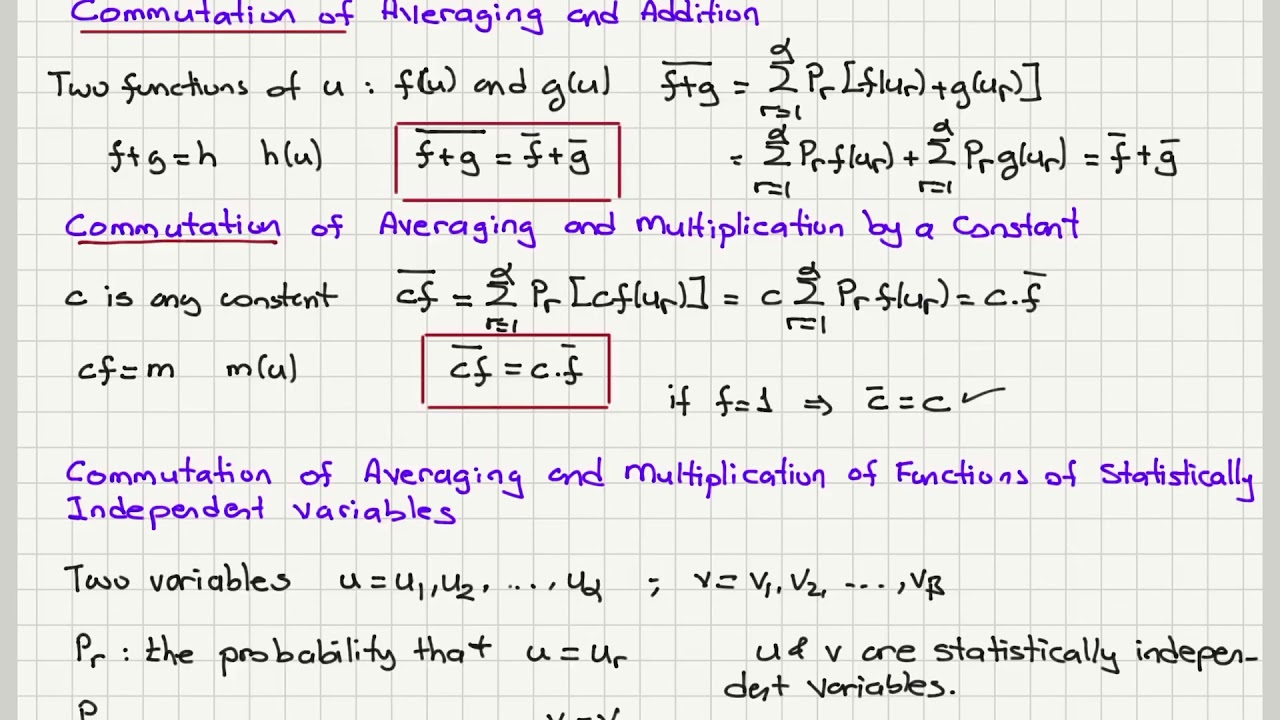 Commutation of Averaging and Addition
Two functions of u : f(u) and g(u) \overline{f+g} = \sum_{r=1}^{α} P_r [f(u_r)+g(u_r)]
f+g=h h(u) \overline{f+g} = \bar{f}+\bar{g} = \sum_{r=1}^{α} P_r f(u_r) + \sum_{r=1}^{α} P_r g(u_r) = \bar{f}+\bar{g}
Commutation of Averaging and Multiplication by a Constant
c is any constant \overline{cf} = \sum_{r=1}^{α} P_r [cf(u_r)] = c \sum_{r=1}^{α} P_r f(u_r) = c.\bar{f}
cf=m m(u) \overline{cf} = c.\bar{f}
if f=1 ⇒ \bar{c}=c ✓
Commutation of Averaging and Multiplication of Functions of Statistically
Independent variables
Two variables u=u_1,u_2, ..., u_α ; v=v_1,v_2, ..., v_β
P_r : the probability that u=u_r u & v are statistically indepen-
dent variables.